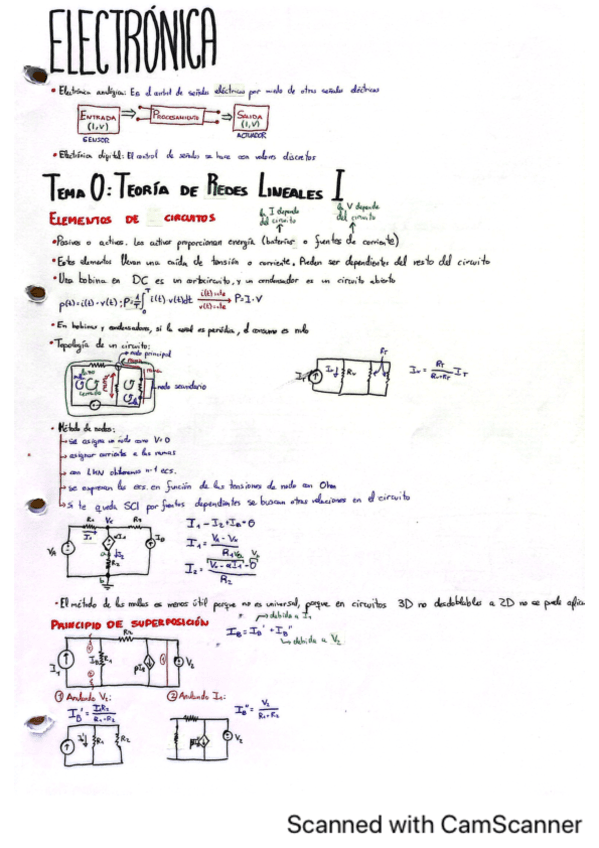 ELECTRÓNICA
• Electrónica analógica: Es el control de señales eléctricas por medio de otras señales eléctricas
ENTRADA (I,V) ⇒ PROCESAMIENTO ⇒ SALIDA (I,V)
SENSOR ACTUADOR
• Electrónica digital: El control de señales se hace con valores discretos
TEMA 0: TEORÍA DE REDES LINEALES I
ELEMENTOS DE CIRCUITOS
la I depende del circuito
la V depende del circuito
• Pasivos o activos. Los activos proporcionan energía (baterías o fuentes de corriente)
• Estos elementos llevan una caída de tensión o corriente. Pueden ser dependientes del resto del circuito
• Una bobina en DC es un cortocircuito, y un condensador es un circuito abierto
p(t)=i(t)·v(t); P=1/T ∫₀ᵀ i(t)·v(t)dt i(t)=cte v(t)=cte → P=I·V
• En bobinas y condensadores, si la señal es periódica, el consumo es nulo
• Topología de un circuito:
nodo principal
rama
nodo secundario
• Método de nodos:
se asigna un nodo como V=0
asignar corriente a las ramas
con LKN obtenemos n-1 ecs.
se expresan las ecs. en función de las tensiones de nodo con Ohm
si te queda SCI por fuentes dependientes se buscan otras relaciones en el circuito
I₁-I₂+I_B=0
• El método de las mallas es menos útil porque no es universal, porque en circuitos 3D no desdoblables a 2D no se puede aplica
PRINCIPIO DE SUPERPOSICIÓN
debida a I₁
I_B=I_B'+I_B''
debida a V₂
① Anulando V₂:
② Anulando I₁:
I_B''= V₂/(R₁+R₂)
Scanned with CamScanner